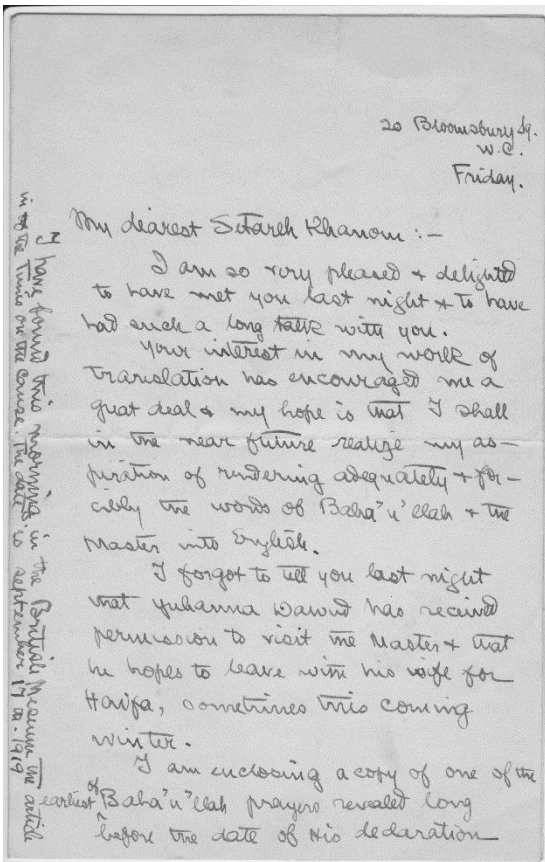 20 Bloomsbury Sq.
W.C.
Friday.
My dearest Sitareh Khanom :-
I am so very pleased & delighted
to have met you last night & to have
had such a long talk with you.
Your interest in my work of
translation has encouraged me a
great deal & my hope is that I shall
in the near future realize my as-
piration of rendering adequately & for-
cibly the words of Baha'u'llah & the
Master into English.
I forgot to tell you last night
that Yuhanna Dawud has received
permission to visit the Master & that
he hopes to leave with his wife for
Haifa, sometimes this coming
winter.
I am enclosing a copy of one of the
earliest of Baha'u'llah prayers revealed long
before the date of His declaration
I have found this morning in the British Museum the article
in the Times on the Cause. The date is september 17th. 1919